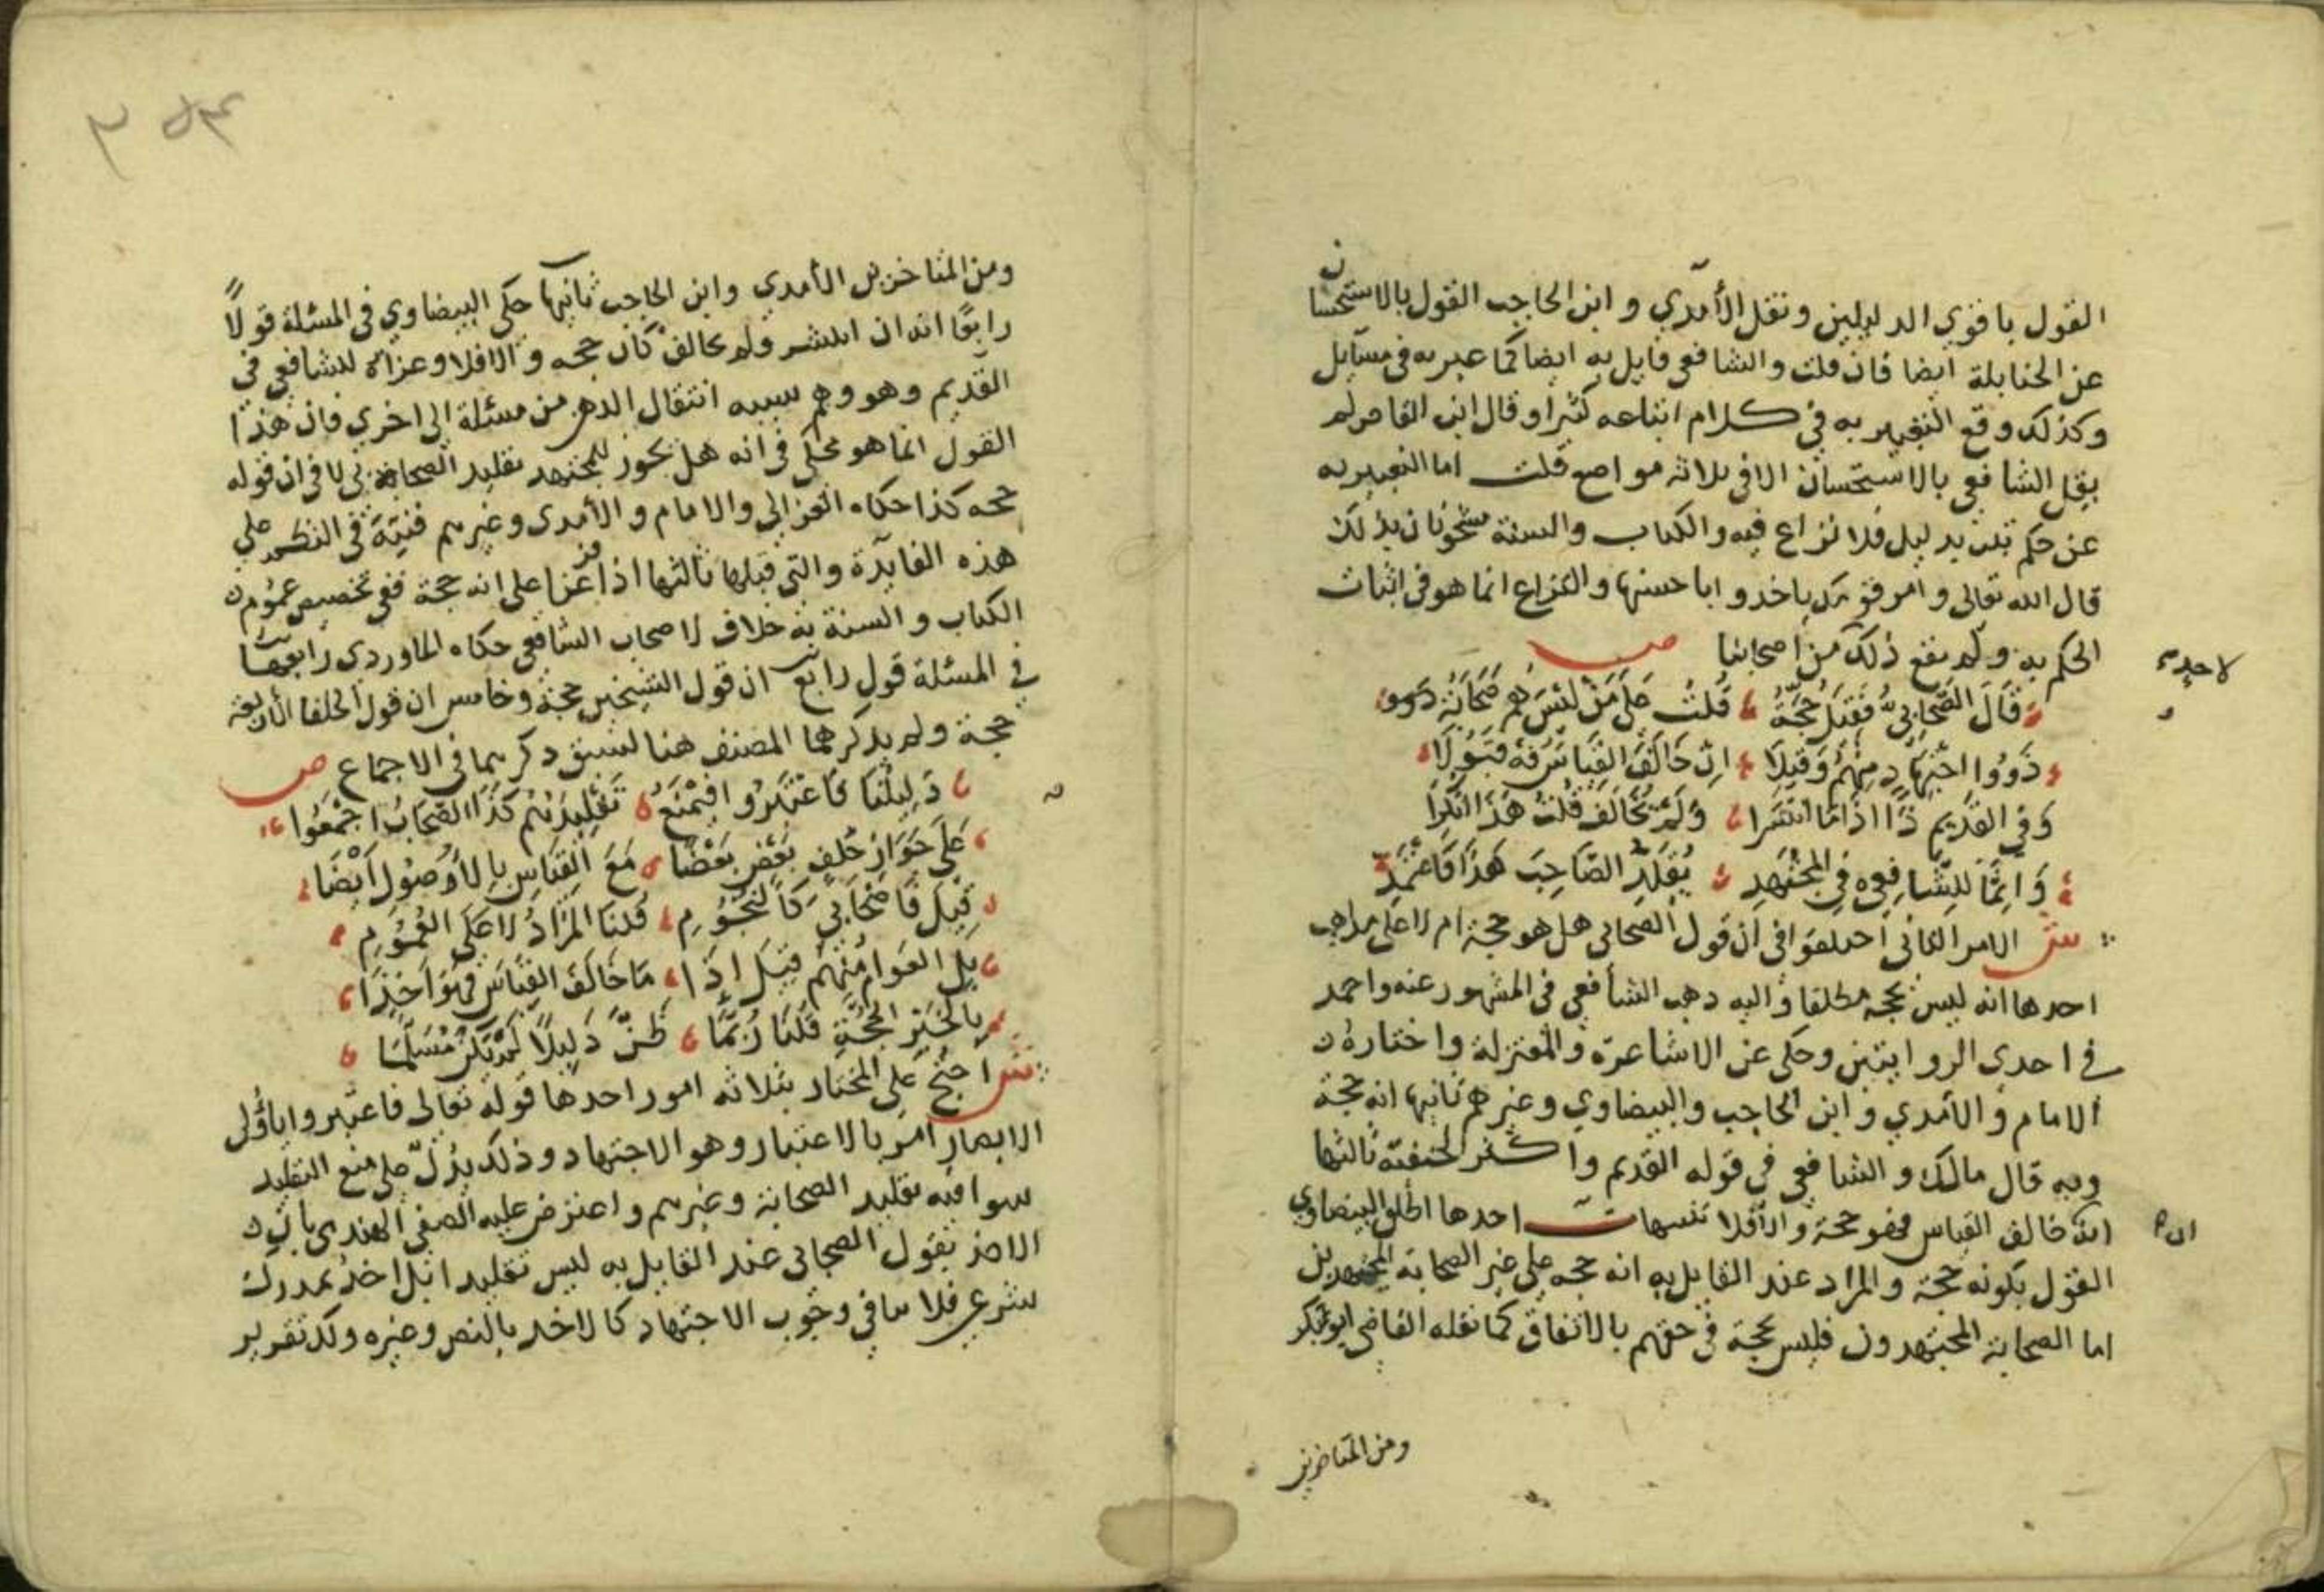 القول باقوي الدليلين ونقل الآمدي وابن الحاجب القول بالاستحسان
عن الحنابلة ايضا فان قلت والشافعي قايل به ايضا كما عبر به في مسآيل
وكذلك وقع التعبير به في كلام اتباعه كثيرا وقال ابن القاص لم
يقل الشافعي بالاستحسان الا في ثلاثة مواضع قلت اما التعبير به
عن حكم ثبت بدليل فلا نزاع فيه والكتاب والسنة مشحونان بذلك
قال الله تعالى وامر قومك ياخذوا باحسنها والنزاع انما هو في اثبات
الحكم به ولم يقع ذلك من اصحابنا ص
لاحد
قَالَ الصَّحَابِيُّ فَقِيلَ حُجَّةٌ قُلْتُ عَلَى مَنْ لَيْسَ هُم صَحَابَةٌ
ذَوُوا اجْتِهَادٍ مِنْهُمُ وَقِيلَا اِنْ خَالَفَ القِيَاسَ
وَفِي القَدِيمِ ذَا اذَا مَا انْتَشَرا وَلَمْ يُخَالَف قُلْتُ هَذَا
وَاِنَّمَا للشَّافِعِي فِي المُجْتَهِدِ يُقَلِّدُ الصَّاحِبَ هَذَا فَاعْتَمِدْ
ش الامر الثاني اختلفوا في ان قول الصحابي هل هو حجة ام لا على مذاهب
احدها انه ليس بحجة مطلقا واليه ذهب الشافعي في المشهور عنه واحمد
في احدى الروايتين وحكى عن الاشاعرة والمعتزلة واختاره
الامام والآمدي وابن الحاجب والبيضاوي وغيرهم ثانيها انه حجة
وبه قال مالك والشافعي في قوله القديم واكثر الحنفية ثالثها
انه خالف القياس فهو حجة والا فلا تنبيهات احدها اطلق البيضاوي
ان
القول بكونه حجة والمراد عند القايل به انه حجة على غير الصحابة المجتهدين
اما الصحابة المجتهدون فليس بحجة في حقهم بالاتفاق كما نقله القاضي ابو بكر
ومن المتاخرين
ومن المتاخرين الآمدي وابن الحاجب ثانيها حكى البيضاوي في المسئلة قولاً
رابعًا انه ان انتشر ولم يخالف كان حجه والا فلا وعزاه للشافعي في
القديم وهو وهم سببه انتقال الذهن من مسئلة الى اخرى فان هذا
القول انما هو محكي في انه هل يجوز للمجتهد تقليد الصحابي لا في ان قوله
حجه كذا حكاه الغزالي والامام والآمدى وغيرهم فنبه في النظم على
هذه الفايدة والتي قبلها ثالثها اذا فرعنا على انه حجة ففي تخصيص عموم
الكتاب والسنة به خلاف لاصحاب الشافعي حكاه الماوردي رابعها
في المسئلة قول رابع ان قول الشيخين حجة وخامس ان قول الخلفا الاربعة
حجة ولم يذكرهما المصنف هنا لسبق ذكرهما في الاجماع ص
دَلِيلُنَا فَاعْتَبِرُوا فَيُمْنَعُ تَقْلِيدُهُمْ كَذَا الصِّحَابُ اجْمَعُوا
عَلَى جَوَازِ خُلْفِ بَعْضٍ بَعْضًا مَعَ القِيَاسِ بِالأُصُولِ اَيْضَا
قِيلَ فَاصْحَابِيَ كَالنُّجُومِ قُلْنَا المُرَادُ لَا عَلَى العُمُومِ
بَلِ العَوَامُ مِنْهُم قِيلَ اِذَا مَا خَالَفَ القِيَاسَ فَهْوَ اَخَذَا
بِالخَبَرِ الحُجَّةِ قُلْنَا رُبَّمَا ظَنَّ دَلِيلًا لَمْ يَكُنْ مُسَلَّمَا
ش احتج على المختار بثلاثه امور احدها قوله تعالى فاعتبروا ياؤلى
الابصار امر بالاعتبار وهو الاجتهاد وذلك يدل على منع التقليد
سوا فيه تقليد الصحابة وغيرهم واعترض عليه الصفي الهندى بان
الاخذ بقول الصحابى عند القايل به ليس تقليدا بل اخذ بمدرك
شرعي فلا ينافي وجوب الاجتهاد كالاخذ بالنص وغيره ولك تقرير